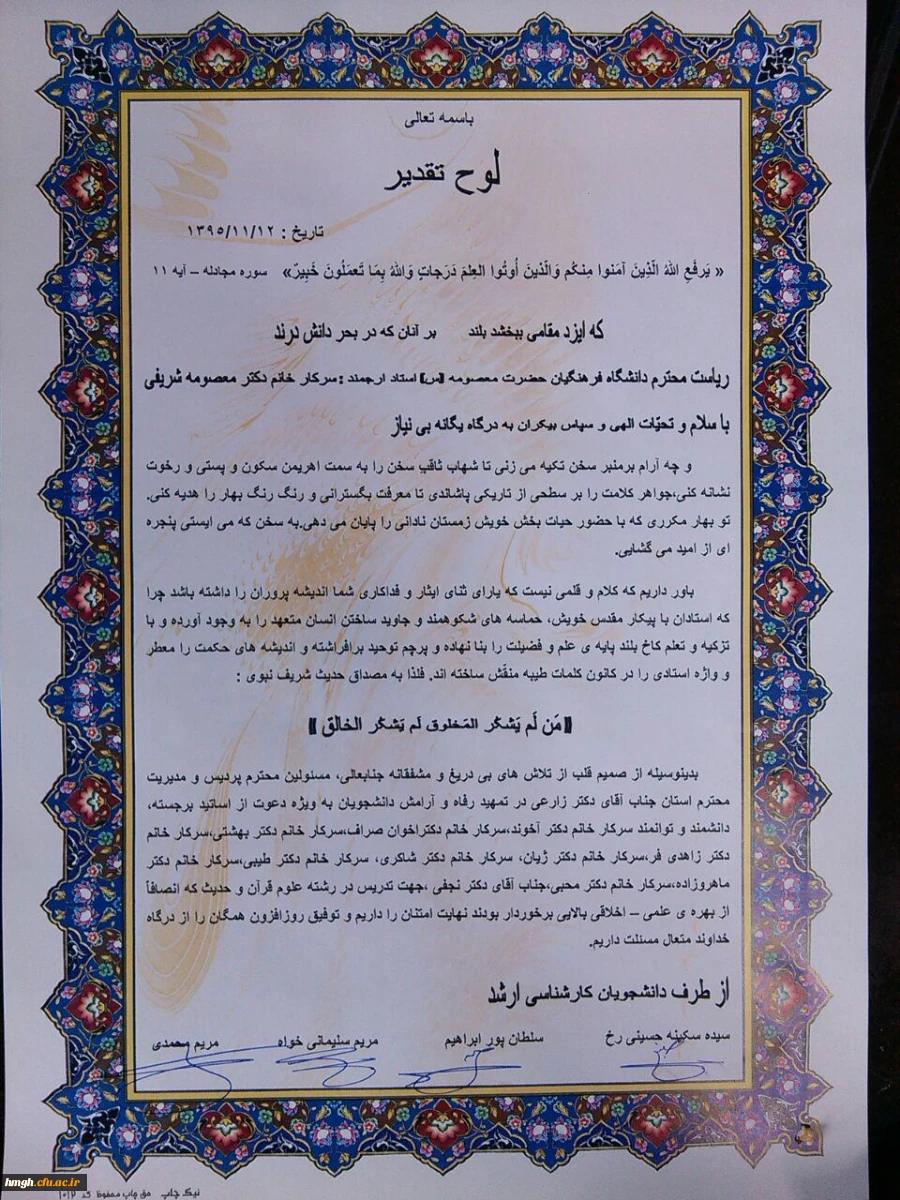 باسمه تعالی
لوح تقدیر
تاریخ : ۱۳۹۵/۱۱/۱۲
« یَرفَعِ اللهُ الَّذینَ آمَنوا مِنکُم وَالَّذینَ أُوتُوا العِلمَ دَرَجاتٍ وَاللهُ بِمَا تَعمَلُونَ خَبِیرٌ» سوره مجادله – آیه ۱۱
که ایزد مقامی ببخشد بلند بر آنان که در بحر دانش درند
ریاست محترم دانشگاه فرهنگیان حضرت معصومه (س) استاد ارجمند : سرکار خانم دکتر معصومه شریفی
با سلام و تحیّات الهی و سپاس بیکران به درگاه یگانه بی نیاز
و چه آرام برمنبر سخن تکیه می زنی تا شهاب ثاقبِ سخن را به سمت اهریمن سکون و پستی و رخوت
نشانه کنی،جواهر کلامت را بر سطحی از تاریکی پاشاندی تا معرفت بگسترانی و رنگ رنگ بهار را هدیه کنی.
تو بهار مکرری که با حضور حیات بخش خویش زمستان نادانی را پایان می دهی.به سخن که می ایستی پنجره
ای از امید می گشایی.
باور داریم که کلام و قلمی نیست که یارای ثنای ایثار و فداکاری شما اندیشه پروران را داشته باشد چرا
که استادان با پیکار مقدس خویش، حماسه های شکوهمند و جاوید ساختن انسان متعهد را به وجود آورده و با
تزکیه و تعلم کاخ بلند پایه ی علم و فضیلت را بنا نهاده و پرچم توحید برافراشته و اندیشه های حکمت را معطر
و واژه استادی را در کانون کلمات طیبه منقّش ساخته اند. فلذا به مصداق حدیث شریف نبوی :
((مَن لَم یَشکُر المَخلوق لَم یَشکُر الخالق))
بدینوسیله از صمیم قلب از تلاش های بی دریغ و مشفقانه جنابعالی، مسئولین محترم پردیس و مدیریت
محترم استان جناب آقای دکتر زارعی در تمهید رفاه و آرامش دانشجویان به ویژه دعوت از اساتید برجسته،
دانشمند و توانمند سرکار خانم دکتر آخوند،سرکار خانم دکتراخوان صراف،سرکار خانم دکتر بهشتی،سرکار خانم
دکتر زاهدی فر،سرکار خانم دکتر ژیان، سرکار خانم دکتر شاکری، سرکار خانم دکتر طیبی،سرکار خانم دکتر
ماهروزاده،سرکار خانم دکتر محبی،جناب آقای دکتر نجفی ،جهت تدریس در رشته علوم قرآن و حدیث که انصافاً
از بهره ی علمی – اخلاقی بالایی برخوردار بودند نهایت امتنان را داریم و توفیق روزافزون همگان را از درگاه
خداوند متعال مسئلت داریم.
از طرف دانشجویان کارشناسی ارشد
سیده سکینه حسینی رخ سلطان پور ابراهیم مریم سلیمانی خواه مریم محمدی
نیک چاپ حق چاپ محفوظ کد ۱۰۱۲
hmgh.cfu.ac.ir